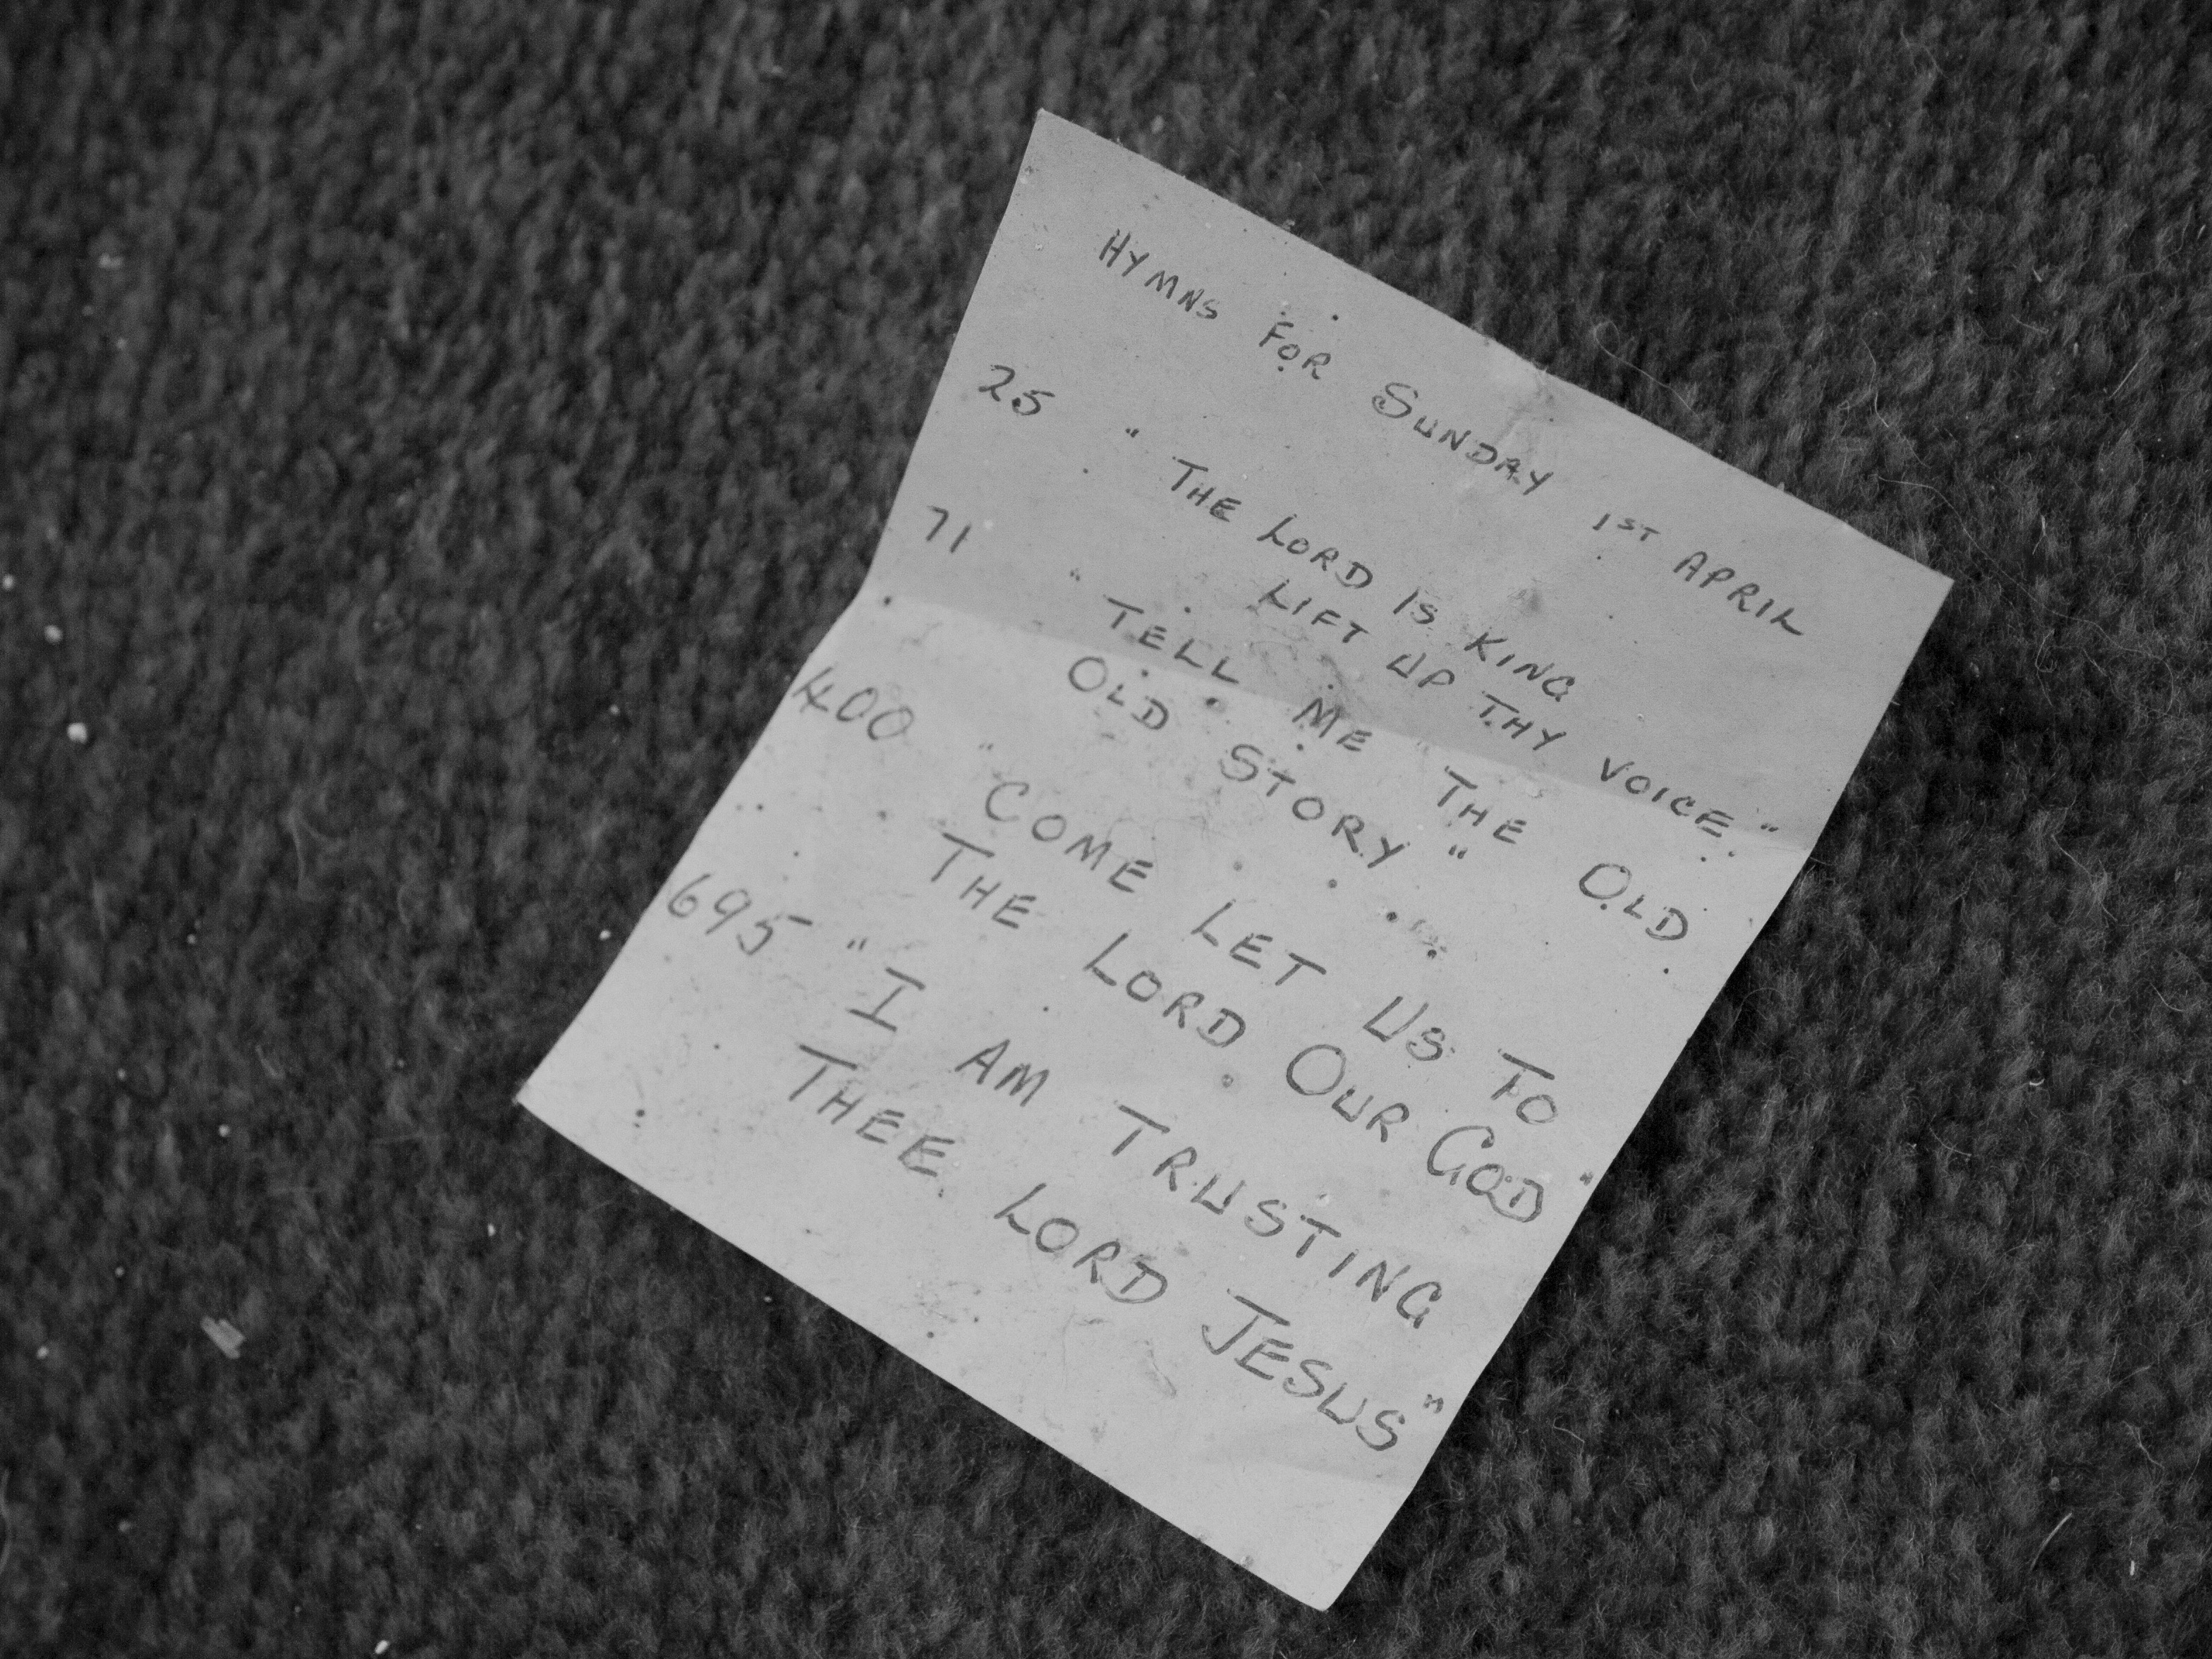 HYMNS FOR SUNDAY 1ST APRIL
25 " THE LORD IS KING
LIFT UP THY VOICE."
71 " TELL ME THE OLD
OLD STORY "
400 " COME LET US TO
THE LORD OUR GOD "
695 " I AM TRUSTING
THEE LORD JESUS "